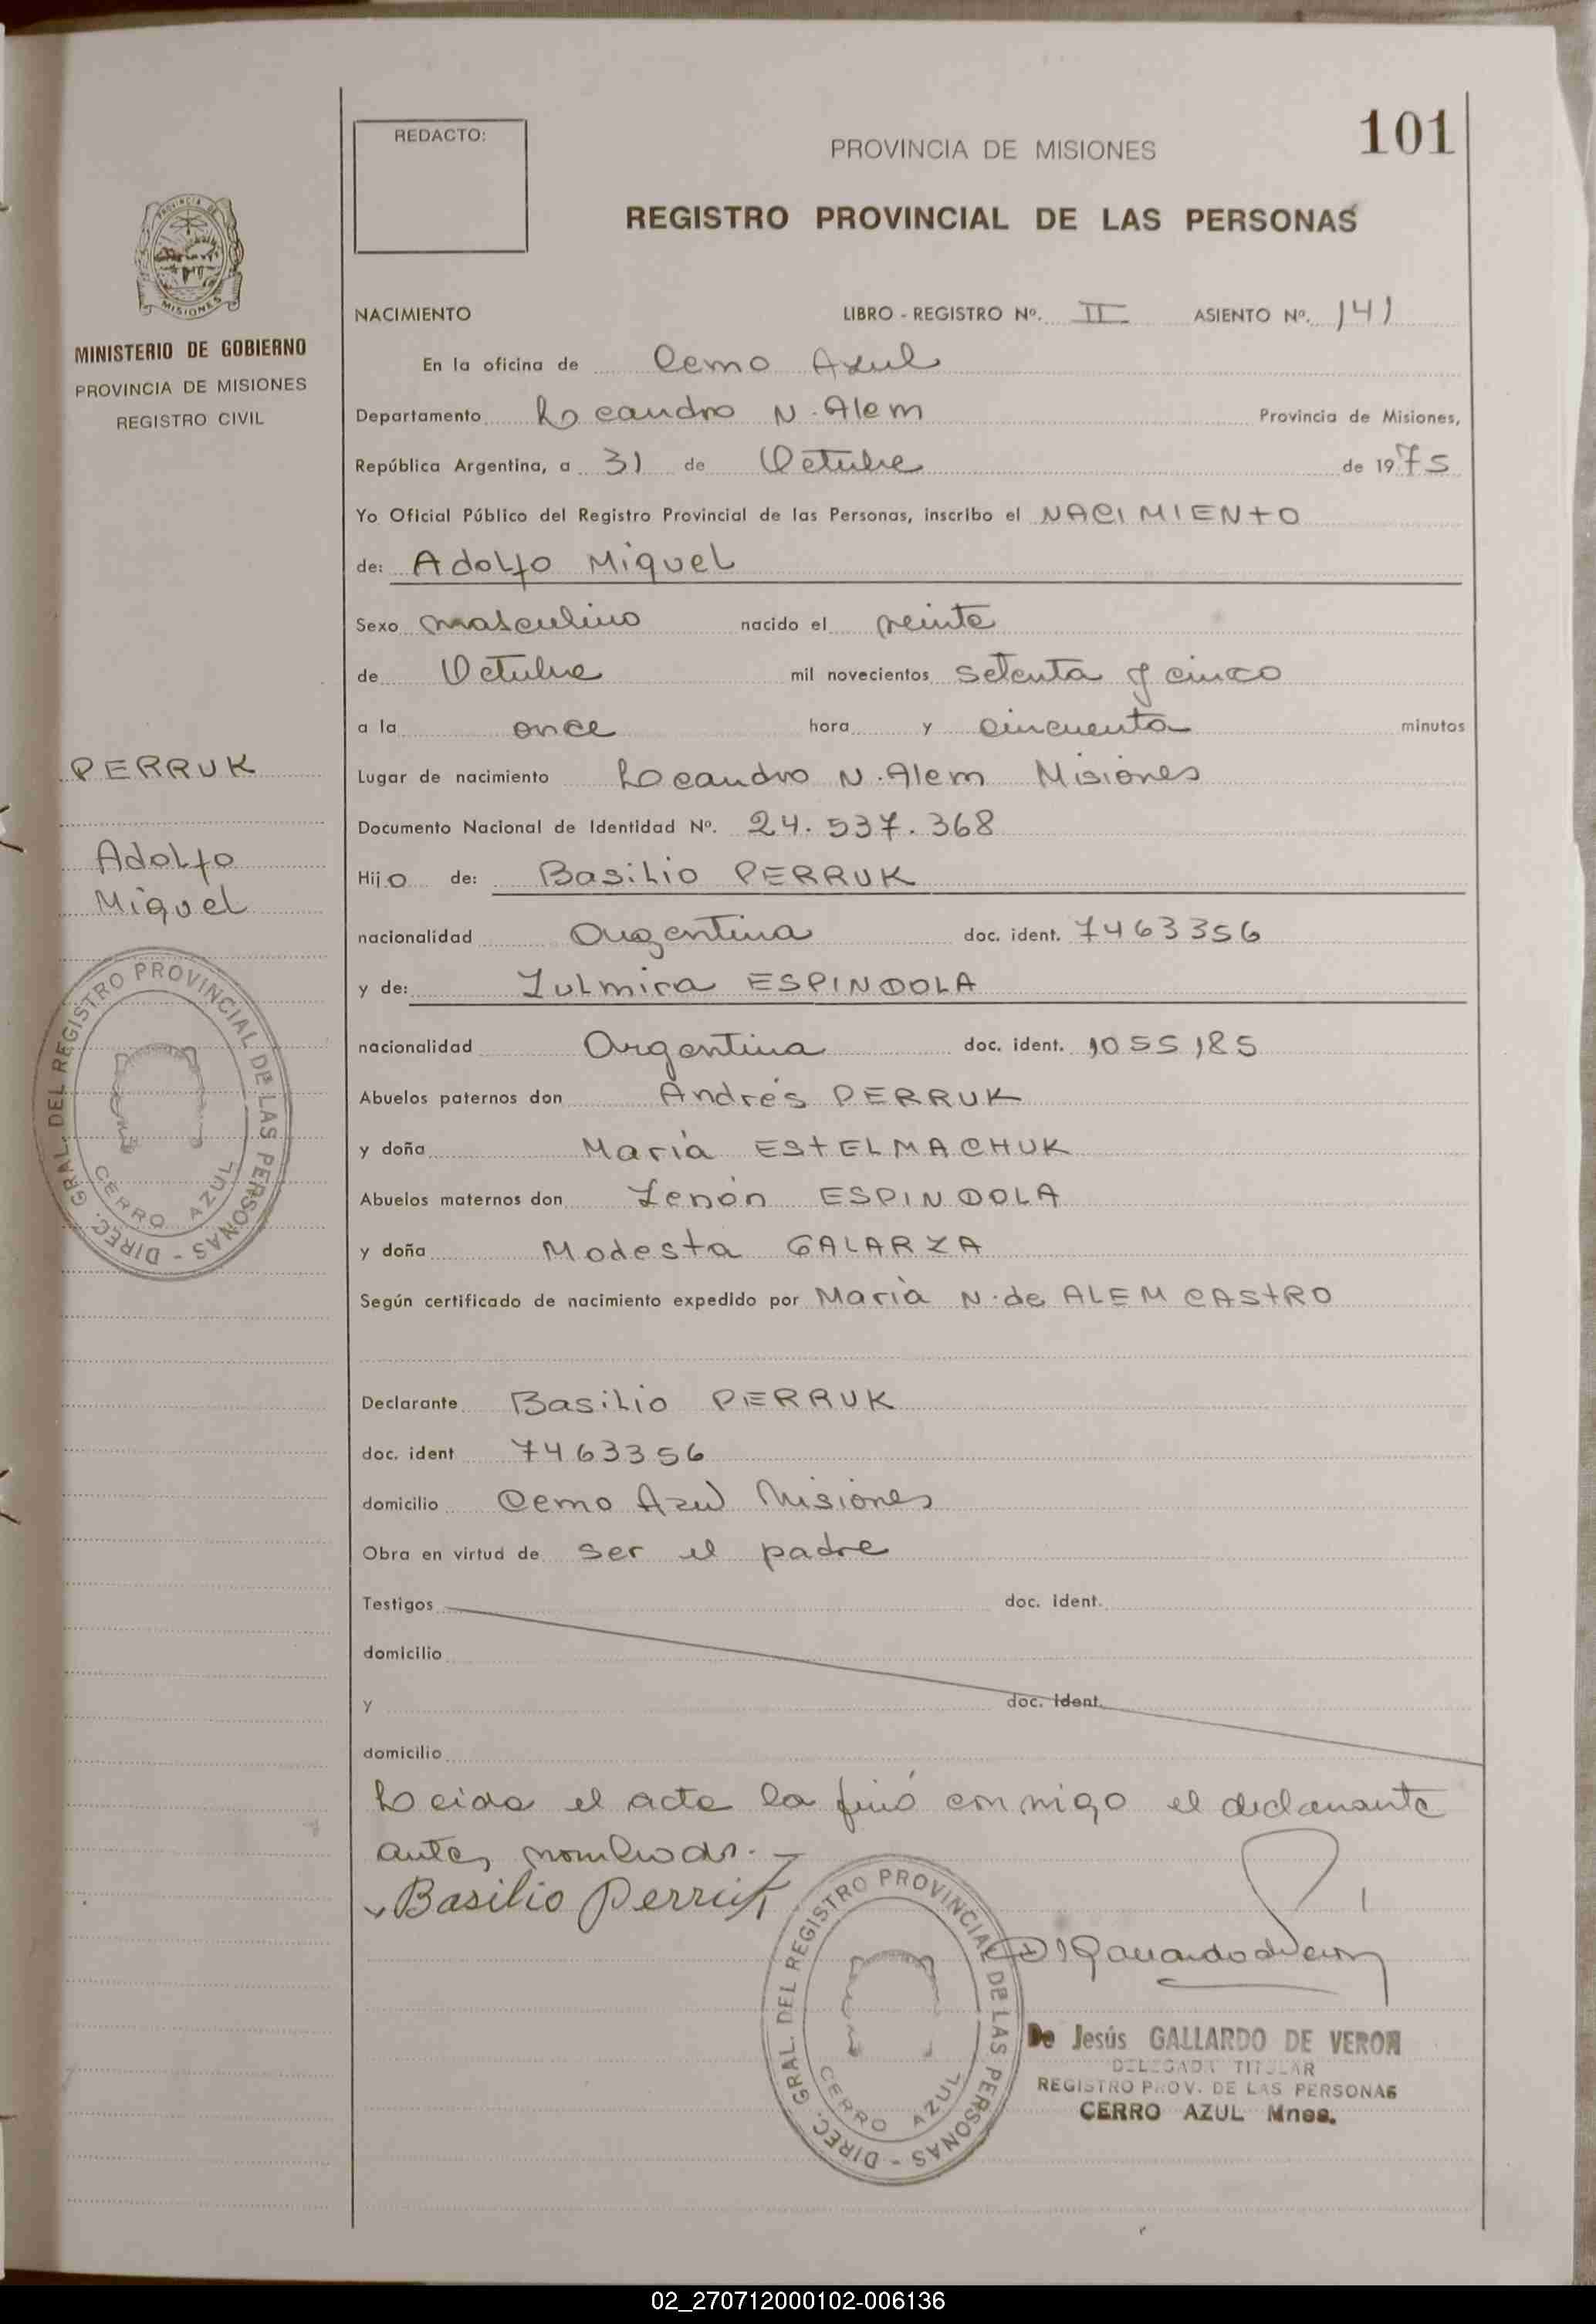 101
REDACTO:
PROVINCIA DE MISIONES
REGISTRO PROVINCIAL DE LAS PERSONAS
PROVINCIA DE MISIONES
MINISTERIO DE GOBIERNO
PROVINCIA DE MISIONES
REGISTRO CIVIL
NACIMIENTO LIBRO - REGISTRO Nº. II ASIENTO Nº. 141
En la oficina de Cerro Azul
Departamento Leandro N. Alem Provincia de Misiones,
República Argentina, a 31 de Octubre de 1975
Yo Oficial Público del Registro Provincial de las Personas, inscribo el NACIMIENTO
de: Adolfo Miguel
Sexo masculino nacido el veinte
de Octubre mil novecientos setenta y cinco
a la once hora y cincuenta minutos
PERRUK
Adolfo
Miguel
Lugar de nacimiento Leandro N. Alem Misiones
Documento Nacional de Identidad Nº. 24.537.368
Hijo de: Basilio PERRUK
nacionalidad Argentina doc. ident. 7463356
y de: Zulmira ESPINDOLA
nacionalidad Argentina doc. ident. 1055185
Abuelos paternos don Andrés PERRUK
y doña María ESTELMACHUK
Abuelos maternos don Zenón ESPINDOLA
y doña Modesta GALARZA
Según certificado de nacimiento expedido por María N. de ALEM CASTRO
DIREC. GRAL. DEL REGISTRO PROVINCIAL DE LAS PERSONAS -
CERRO AZUL
Declarante Basilio PERRUK
doc. ident 7463356
domicilio Cerro Azul Misiones
Obra en virtud de ser el padre
Testigos doc. ident.
domicilio
y doc. ident.
domicilio
Leida el acta la firmó conmigo el declarante
antes nombrado.
Basilio Perruk
DIREC. GRAL. DEL REGISTRO PROVINCIAL DE LAS PERSONAS -
CERRO AZUL
De Jesús GALLARDO DE VERON
DELEGADA TITULAR
REGISTRO PROV. DE LAS PERSONAS
CERRO AZUL Mnes.
02_270712000102-006136